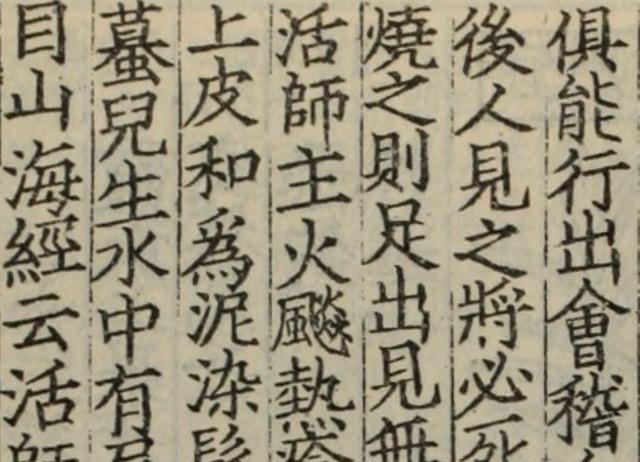 俱能行出會稽
後人見之將必死
燒之則足出見無
活師主火飈熱瘡
上皮和爲泥染髭
蟇兒生水中有
目山海經云活師